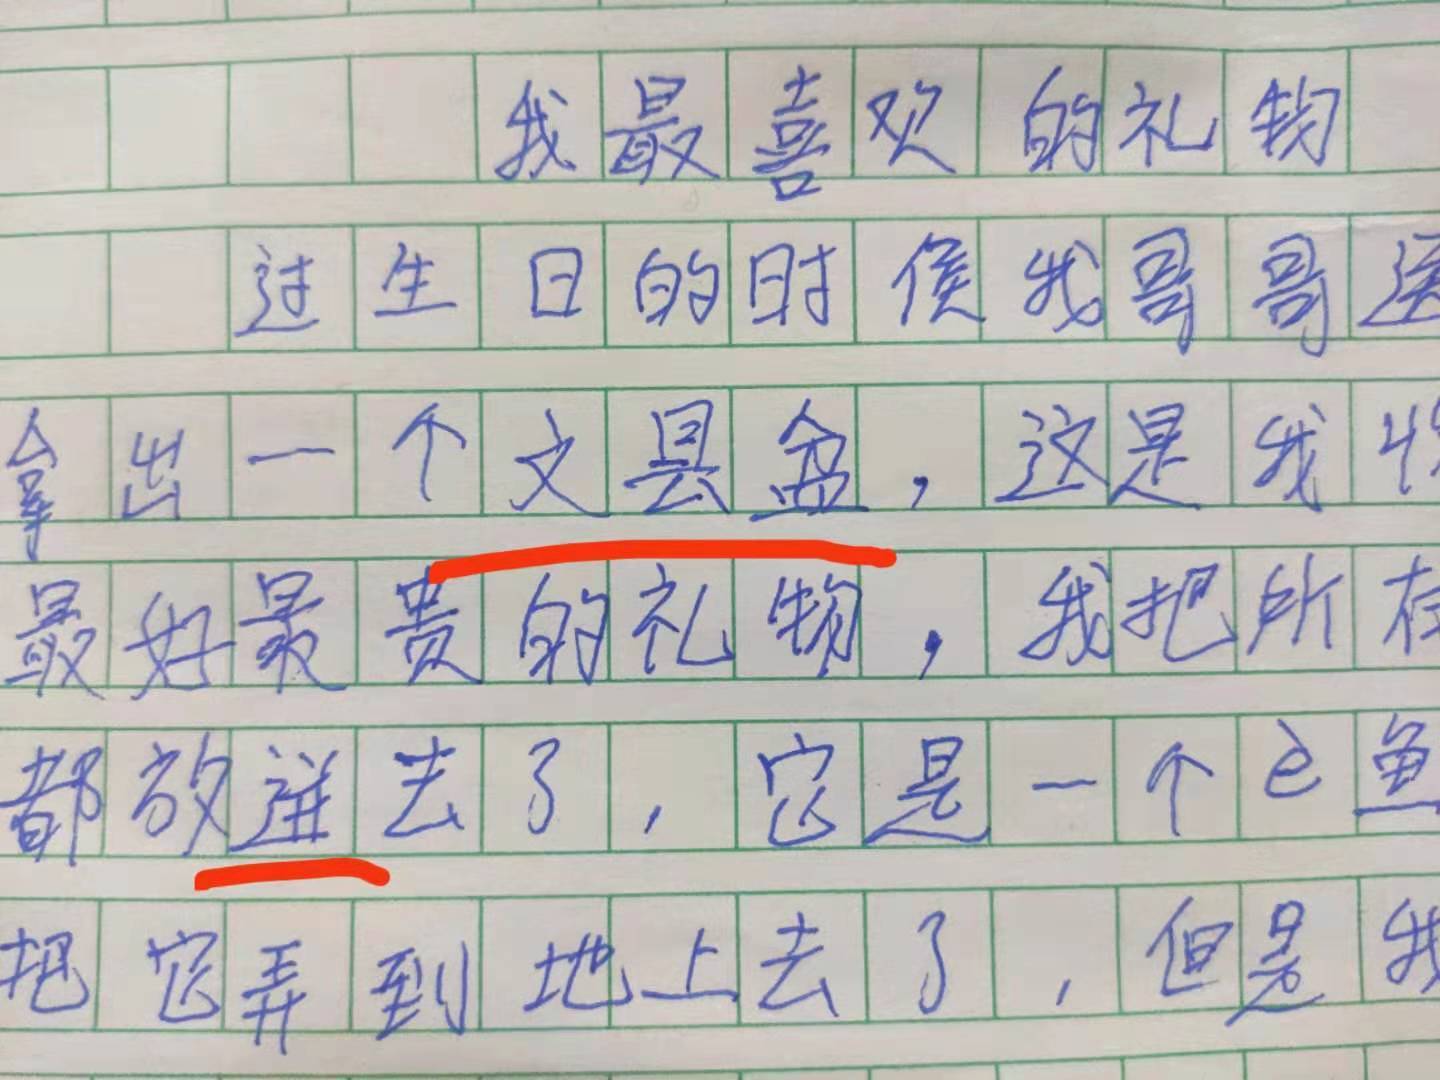 我最喜欢的礼物
过生日的时侯我哥哥送
拿出一个文县盆，这是我收
最好最贵的礼物，我把所存
都放进去了，它是一个鱼
把它弄到地上去了，但是我